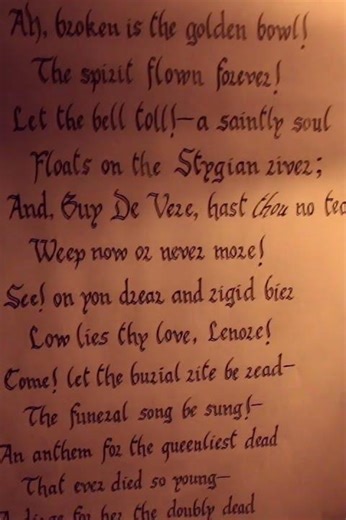 Ah, broken is the golden bowl!
The spirit flown forever!
Let the bell toll!—a saintly soul
Floats on the Stygian river;
And, Guy De Vere, hast thou no tea
Weep now or never more!
See! on yon drear and rigid bier
Low lies thy love, Lenore!
Come! let the burial rite be read—
The funeral song be sung!—
An anthem for the queenliest dead
That ever died so young—
A dirge for her the doubly dead